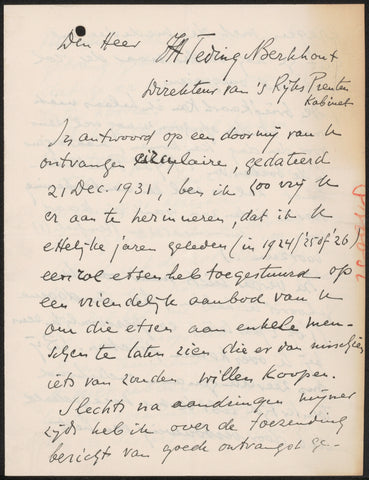 Den Heer JH Teding v Berkhout
Direkteur van 's Rijks Prenten
Kabinet
In antwoord op een door mij van U
ontvangen circulaire, gedateerd
21 Dec. 1931, ben ik zoo vrij U
er aan te herinneren, dat ik U
ettelijke jaren geleden (in 1924/'25 of '26)
een rol etsen heb toegestuurd op
een vriendelijk aanbod van U
om die etsen aan enkele men-
schen te laten zien die er dan misschien
iets van zouden willen koopen.
Slechts na aandringen mijner
zijds heb ik over de toezending
bericht van goede ontvangst ge-